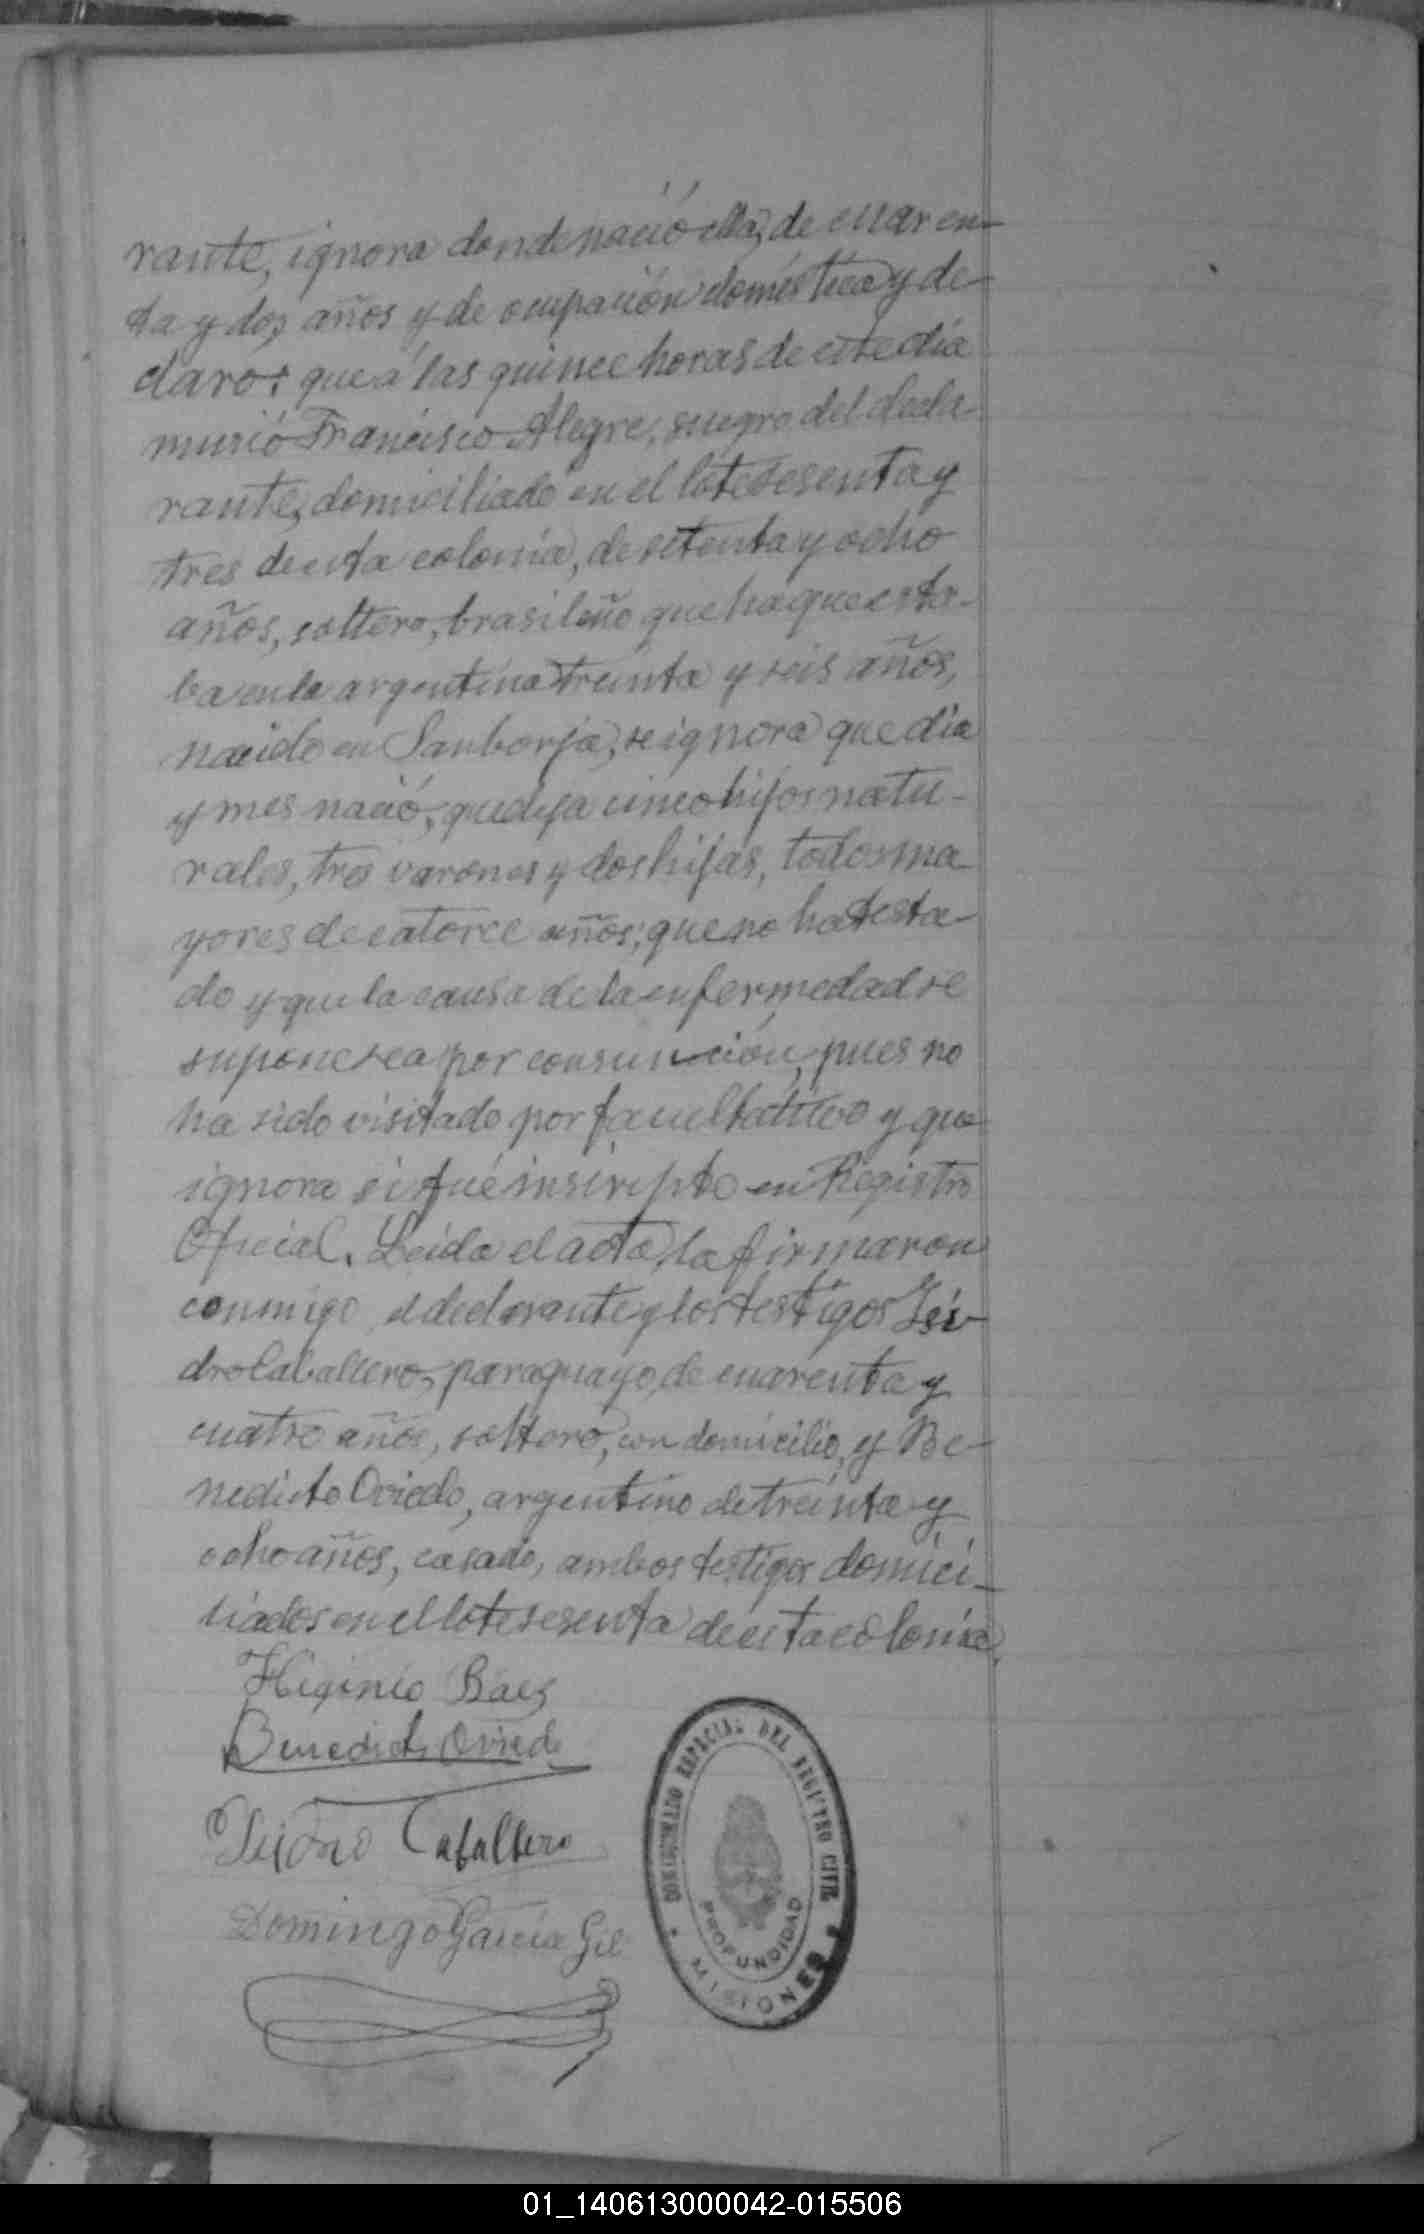 rante, ignora donde nació ella, de cuaren-
ta y dos años y de ocupación doméstica y de-
claro: que á las quince horas de este día
murió Francisco Alegre, suegro del decla-
rante, domiciliado en el lote sesenta y
tres de esta colonia, de setenta y ocho
años, soltero, brasileño que ha que esta-
ba en la argentina treinta y seis años,
nacido en Sanborja, se ignora que día
y mes nació, que deja cinco hijos natu-
rales, tres varones y dos hijas, todos ma-
yores de catorce años; que no ha testa-
do y que la causa de la enfermedad se
supone sea por consunción, pues no
ha sido visitado por facultativo y que
ignora si fué inscripto en Registro
Oficial. Leida el acta, la firmaron
conmigo el declarante y los testigos Isi-
dro Caballero, paraguayo, de cuarenta y
cuatro años, soltero, con domicilio, y Be-
nedicto Oviedo, argentino de treinta y
ocho años, casado, ambos testigos domici-
liados en el lote sesenta de esta colonia.
Higinio Báez
Benedicto Oviedo
Isidro Caballero
Domingo García Gil
COMISARIADO ESPECIAL DEL REGISTRO CIVIL
PROFUNDIDAD
MISIONES
01_140613000042-015506